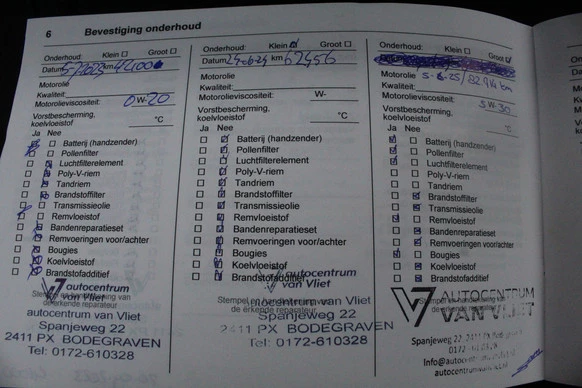 6 Bevestiging onderhoud
Onderhoud: Klein Groot
Datum km
Motorolie
Kwaliteit:
Motorolieviscositeit: 0W-20
Vorstbescherming,
koelvloeistof °C
Ja Nee
Batterij (handzender)
Pollenfilter
Luchtfilterelement
Poly-V-riem
Tandriem
Brandstoffilter
Transmissieolie
Remvloeistof
Bandenreparatieset
Remvoeringen voor/achter
Bougies
Koelvloeistof
Brandstofadditief
autocentrum
van Vliet
Stempel en handtekening van
de erkende reparateur
autocentrum van Vliet
Spanjeweg 22
2411 PX BODEGRAVEN
Tel: 0172-610328
Onderhoud: Klein Groot
Datum 24-06-24 km 62456
Motorolie
Kwaliteit:
Motorolieviscositeit: W-
Vorstbescherming,
koelvloeistof °C
Ja Nee
Batterij (handzender)
Pollenfilter
Luchtfilterelement
Poly-V-riem
Tandriem
Brandstoffilter
Transmissieolie
Remvloeistof
Bandenreparatieset
Remvoeringen voor/achter
Bougies
Koelvloeistof
Brandstofadditief
autocentrum
van Vliet
autocentrum van Vliet
de erkende reparateur
Spanjeweg 22
2411 PX BODEGRAVEN
Tel: 0172-610328
Onderhoud: Klein Groot
Motorolie 5-6-25/ km
Kwaliteit:
Motorolieviscositeit: 5W-30
Vorstbescherming,
koelvloeistof °C
Ja Nee
Batterij (handzender)
Pollenfilter
Luchtfilterelement
Poly-V-riem
Tandriem
Brandstoffilter
Transmissieolie
Remvloeistof
Bandenreparatieset
Remvoeringen voor/achter
Bougies
Koelvloeistof
Brandstofadditief
AUTOCENTRUM
VAN VLIET
Spanjeweg 22, 2411 PX
0172